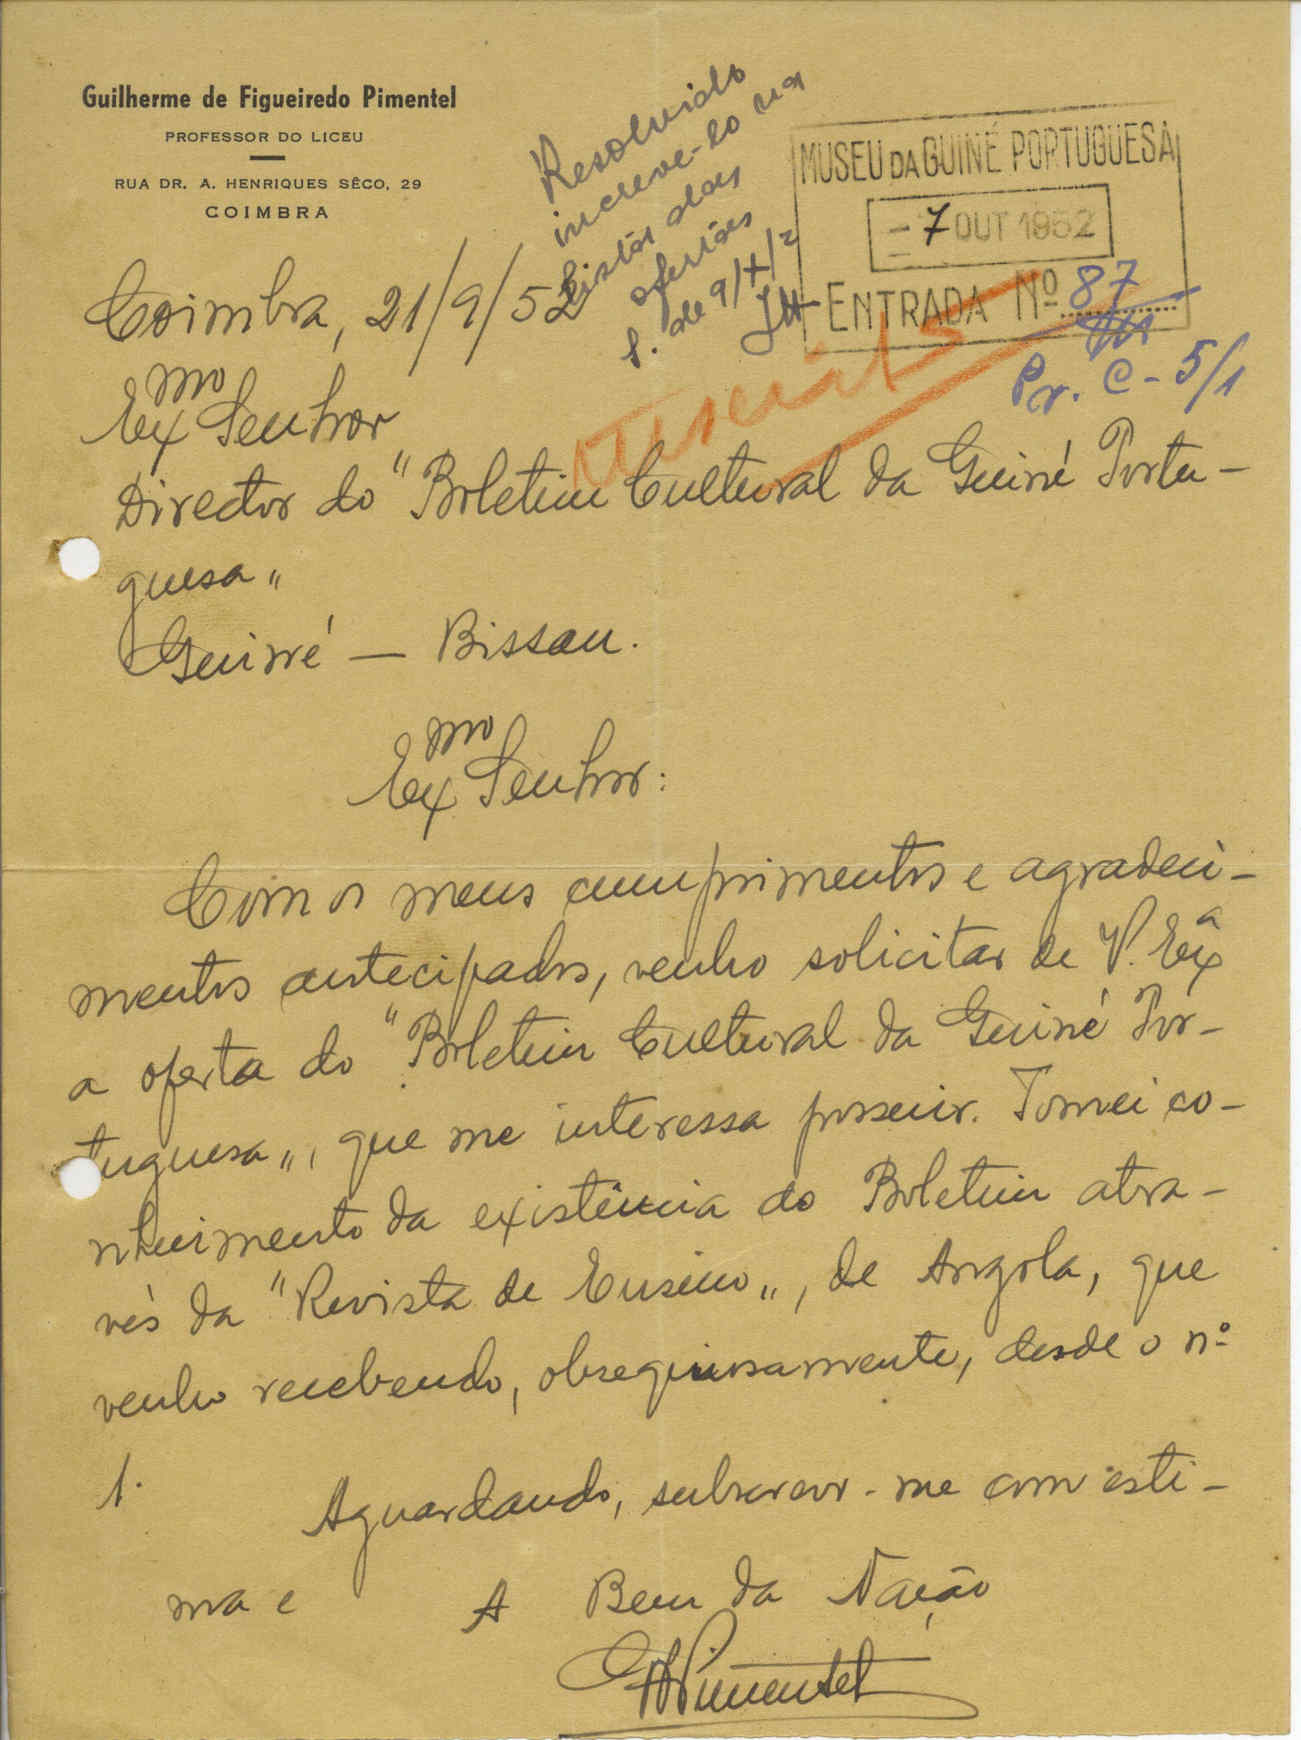 Guilherme de Figueiredo Pimentel
PROFESSOR DO LICEU
RUA DR. A. HENRIQUES SÊCO, 29
COIMBRA
Resolvido
increve-lo na
listas das
ofertas
S. de 9/X/2
MUSEU DA GUINÉ PORTUGUESA
-7 OUT 1952
ENTRADA Nº 87
Pr. C-5/1
Coimbra, 21/9/52
Exmo Senhor
Director do "Boletim Cultural da Guiné Portu-
guesa"
Guiné — Bissau.
Exmo Senhor:
Com os meus cumprimentos e agradeci-
mentos antecipados, venho solicitar de V. Exª
a oferta do "Boletim Cultural da Guiné Por-
tuguesa", que me interessa possuir. Tomei co-
nhecimento da existência do Boletim atra-
vés da "Revista de Ensino", de Angola, que
venho recebendo, obsequiosamente, desde o nº
1.
Aguardando, subscrevo-me com esti-
ma e
A Bem da Nação
GFPimentel